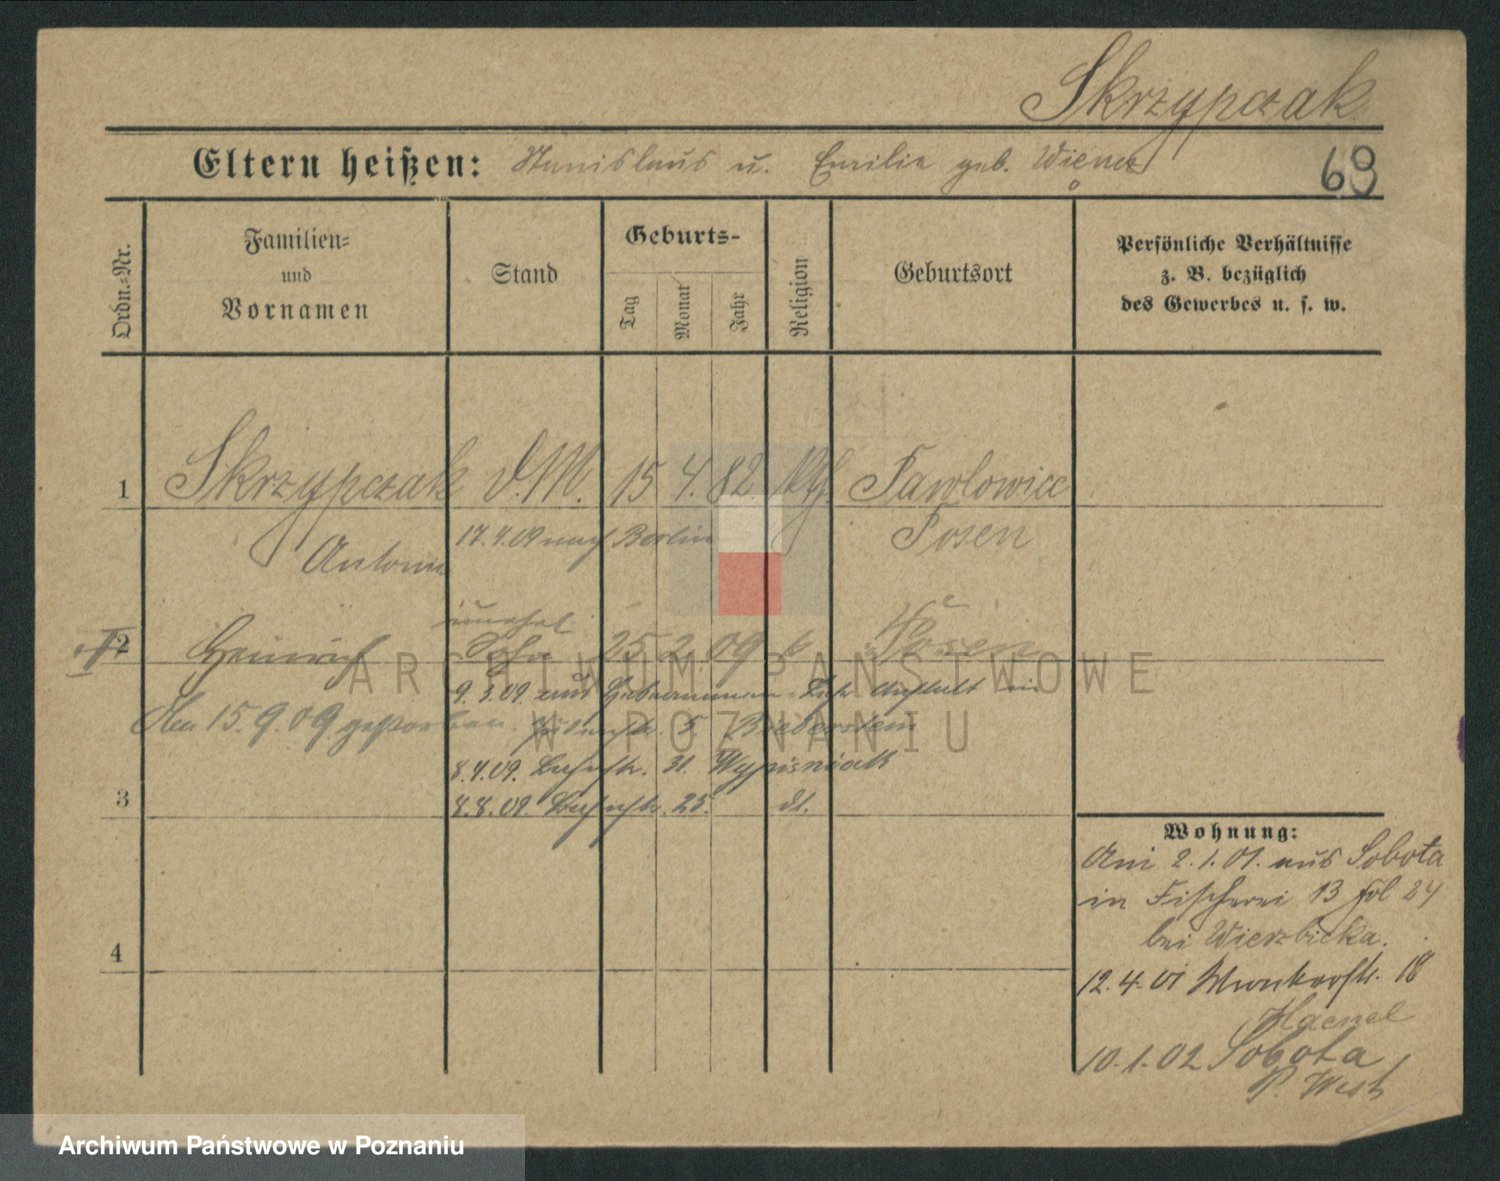 Skrzypczak
Eltern heißen: Stanislaus u. Emilie geb. Wiene
69
Ordn.-Nr.
Familien-
und
Vornamen
Stand
Geburts-
Tag
Monat
Jahr
Religion
Geburtsort
Persönliche Verhältnisse
z. B. bezüglich
des Gewerbes u. s. w.
1 Skrzypczak d. M. 15 4. 82 Pawlowice
Antonie 17.4.09 nach Berlin Posen
unehel.
2 Heinrich Sohn 25 2 09 k Posen
9.3.09. aus Hebammen-Lehr Anstalt in
Am 15.9.09 gestorben. 5. Biederstein
8.4.09. 31 Wypisniak
3 8.8.09. 25. dt.
Wohnung:
Am 2.1.01. aus Sobota
in Fischerei 13 fol 24
bei Wierzbicka.
4
12.4.01 18
Haenel
10.1.02 Sobota
P. West
ARCHIWUM PAŃSTWOWE
W POZNANIU
Archiwum Państwowe w Poznaniu